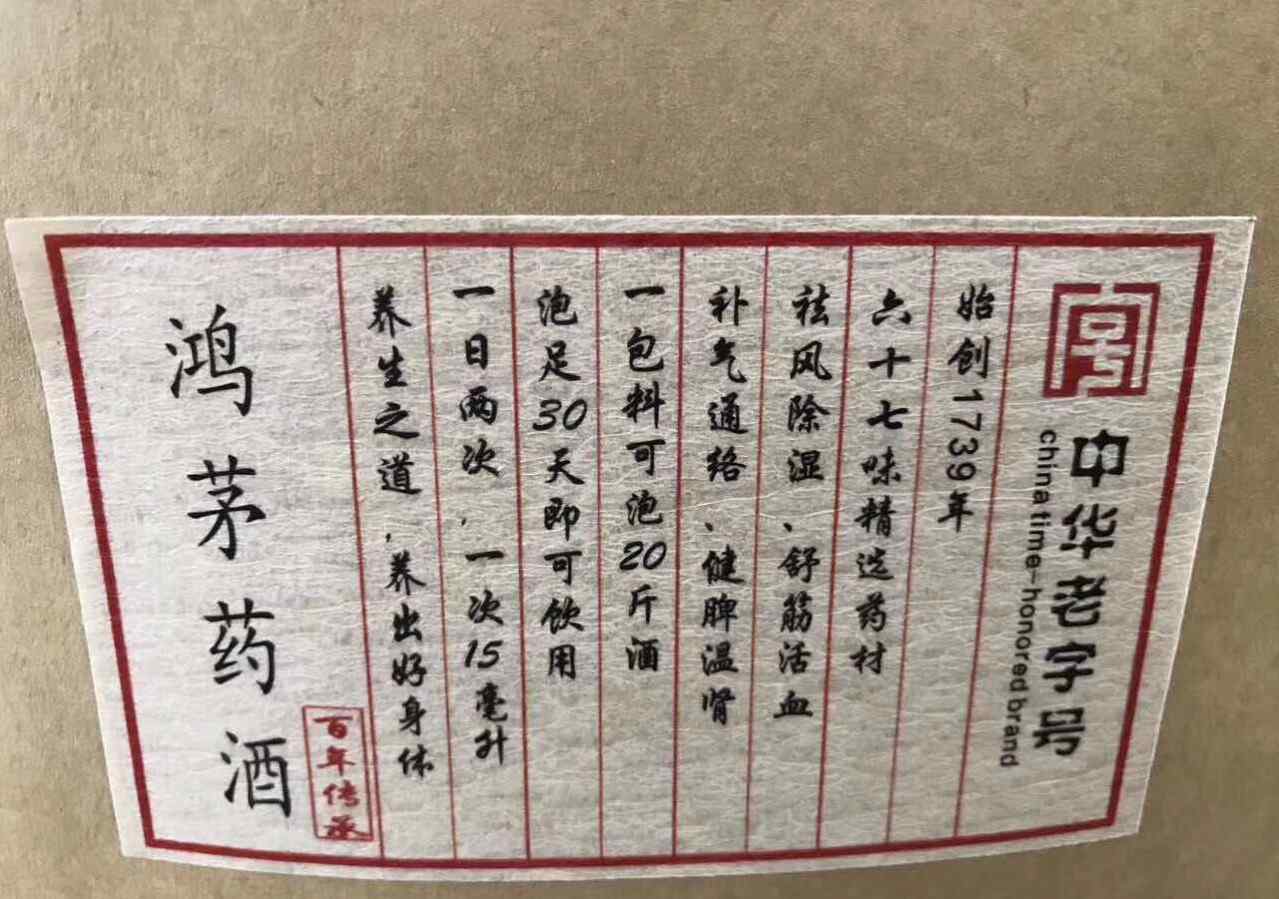 中华老字号
china time-honored brand
始创1739年
六十七味精选药材
祛风除湿、舒筋活血
补气通络、健脾温肾
一包料可泡20斤酒
泡足30天即可饮用
一日两次，一次15毫升
养生之道，养出好身体
百年传承
鸿茅药酒